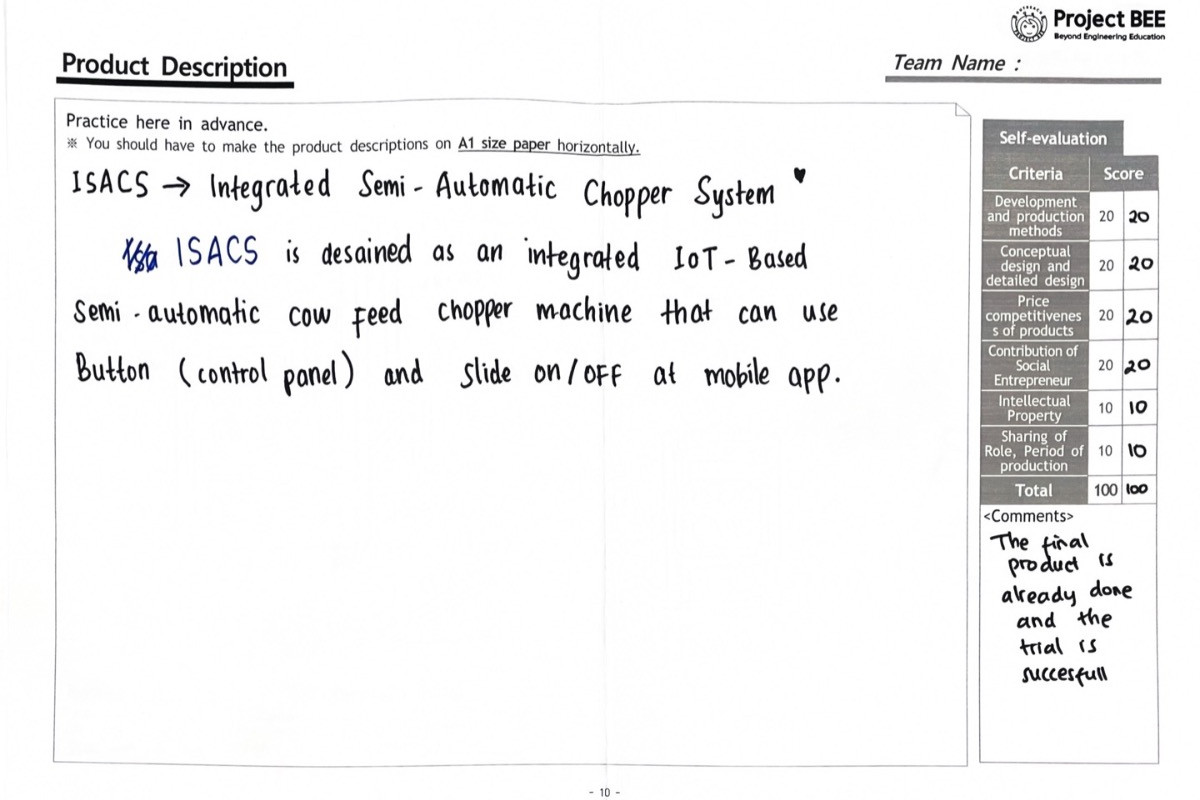 Project BEE
Beyond Engineering Education
Product Description
Team Name :
Practice here in advance.
※ You should have to make the product descriptions on A1 size paper horizontally.
ISACS → Integrated Semi - Automatic Chopper System ♥
ISACS is desained as an integrated IoT - Based
Semi - automatic cow feed chopper machine that can use
Button (control panel) and slide on / OFF at mobile app.
Self-evaluation
Criteria Score
Development
and production 20 20
methods
Conceptual
design and 20 20
detailed design
Price
competitivenes 20 20
s of products
Contribution of
Social 20 20
Entrepreneur
Intellectual
Property 10 10
Sharing of
Role, Period of 10 10
production
Total 100 100
<Comments>
The final
product is
already done
and the
trial is
succesfull
- 10 -